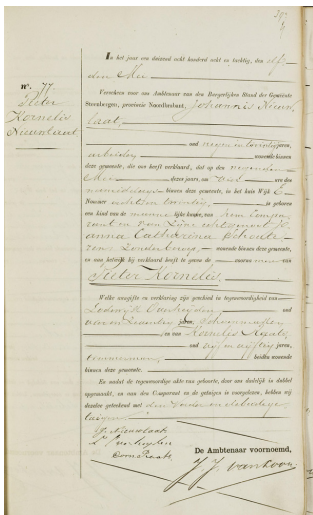 No. 77.
Pieter
Kornelis
Nieuwlaat
In het jaar een duizend acht honderd acht en tachtig, den elf
den Mei
Verscheen voor ons Ambtenaar van den Burgerlijken Stand der Gemeente
Steenbergen, provincie Noordbrabant, Johannis Nieuw
laat,
oud negen en twintig jaren,
arbeider, wonende binnen
deze gemeente, die ons heeft verklaard, dat op den negenden
Mei dezes jaars, om vier ure des
namiddags binnen deze gemeente, in het huis Wijk E
Nummer achttien is geboren
een kind van de mannelijke kunne, van hem Compa
rant en van zijne echtgenoot Jo
anna Catharina
zonder beroep, wonende binnen deze gemeente,
en aan hetwelk hij verklaard heeft te geven de voornamen van
Pieter Kornelis.
Welke aangifte en verklaring zijn geschied in tegenwoordigheid van
Lodewijk
oud jaren, schoenmaker
en van Kornelis
oud vijf en vijftig jaren,
timmerman, beiden wonende
binnen deze gemeente.
En nadat de tegenwoordige akte van geboorte, door ons dadelijk in dubbel
opgemaakt, en aan den Comparant en de getuigen is voorgelezen, hebben wij
dezelve geteekend met den Vader en de beide ge
tuigen.
J. Nieuwlaat
De Ambtenaar voornoemd,
J. J. van Loon